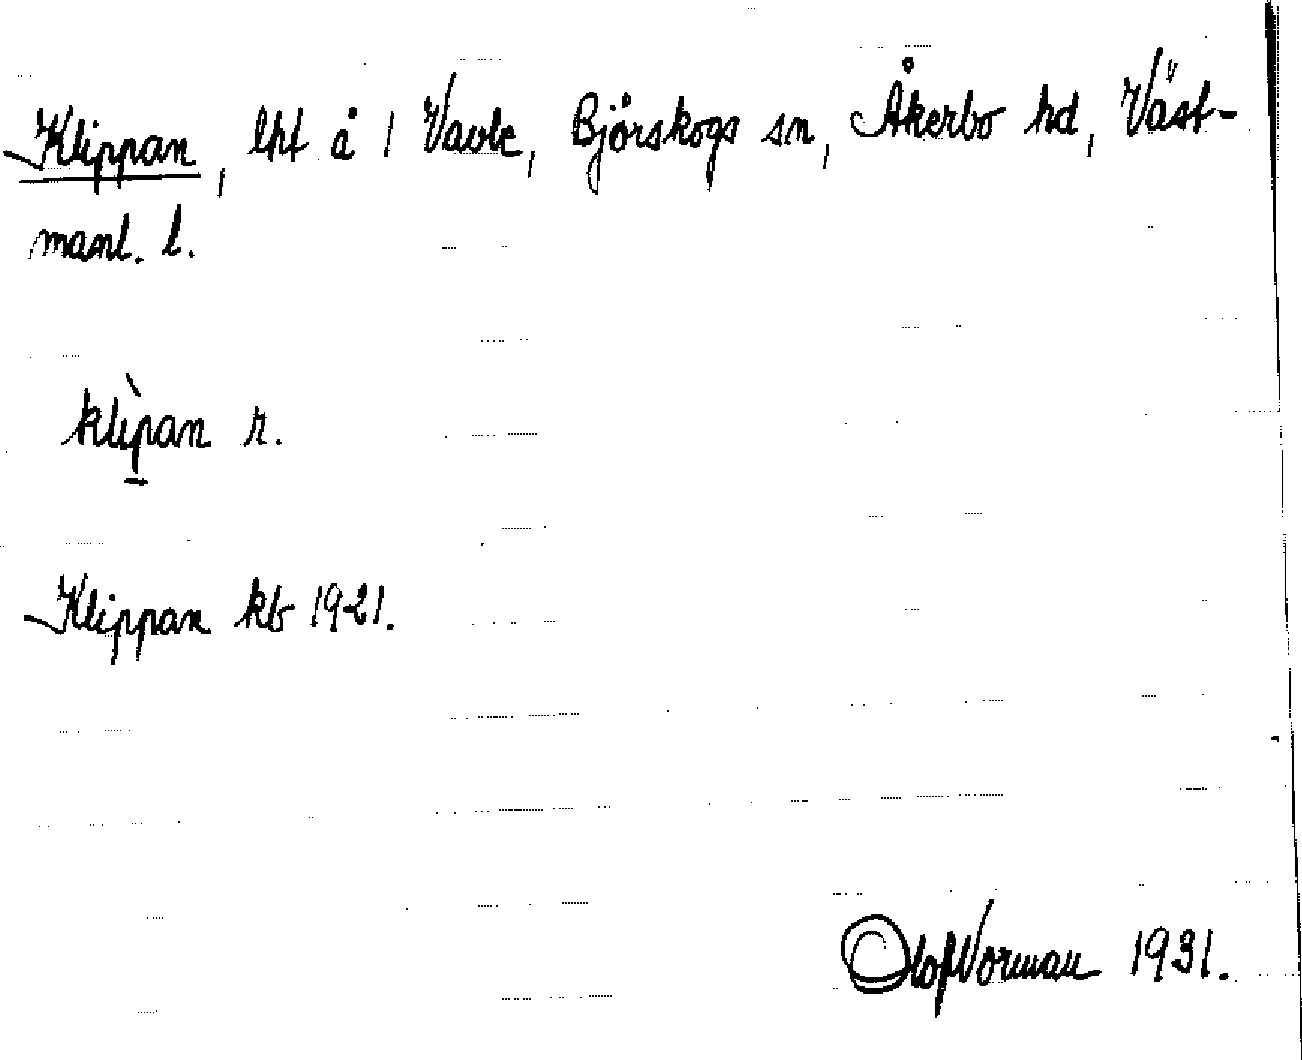 Klippan, lht å 1 Vavle, Björskogs sn, Åkerbo hd, Väst-
manl. l.
klìpan r.
Klippan kb 1921.
Olof Norman 1931.